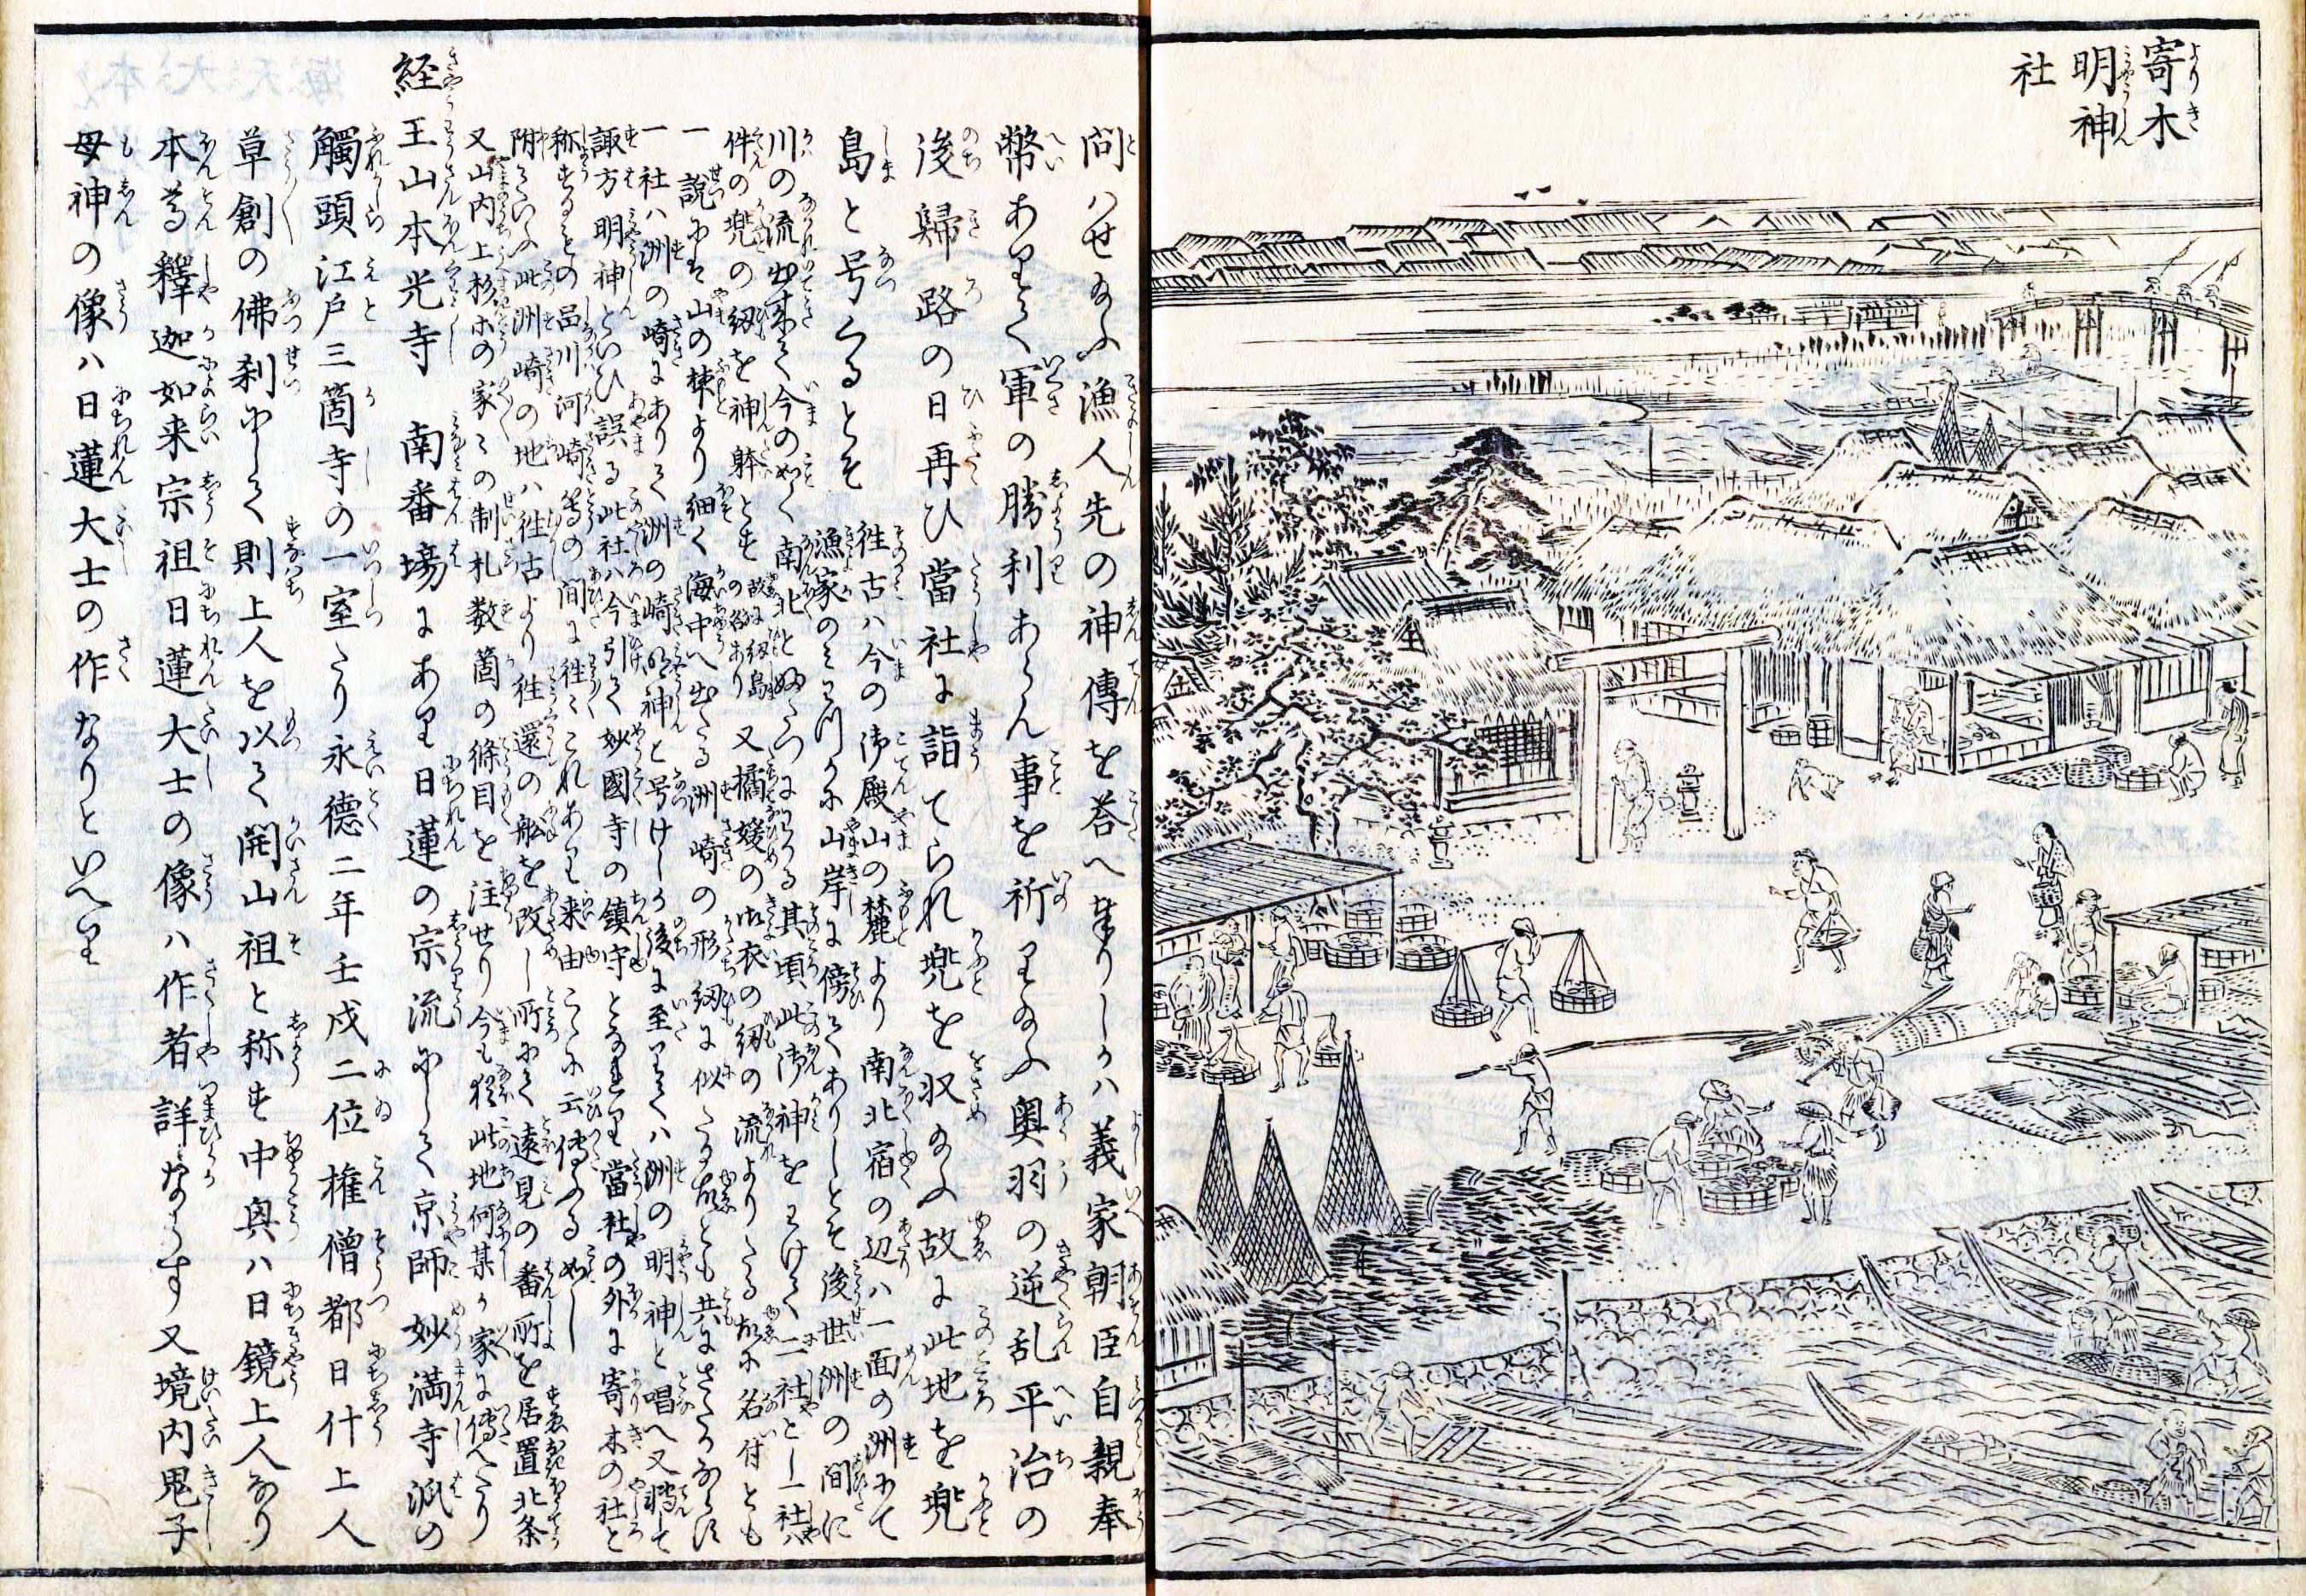 寄木
明神
社
問ハせ給ふ漁人先の神傳を答へ奉りしかハ義家朝臣自親奉
幣ありて軍の勝利あらん事を祈り給ふ奥羽の逆乱平治の
後歸路の日再ひ當社に詣てられ兜を収給ふ故に此地を兜
島と号くるとそ
往古ハ今の御殿山の麓より南北宿の辺ハ一面の洲にて
漁家のミ
山岸に傍てありしとそ後世洲の間に
川の流出来て今の如く南北と
其頃此御神を
二社とし一社ハ
件の兜の紐を神躰とす
故に紐島の名あり
又橘媛の御衣の紐の流より
名付とも
一説に
山の棟より細く海中へ出たる洲崎の形紐に似たる故とも共に
一社ハ洲の崎にありて洲の崎明神と号けしか後に至りてハ洲の明神と唱へ又轉して
諏方明神といひ誤る此社ハ今引て妙國寺の鎮守となれり當社の外に寄木の社と
称するもの品川河崎等の間に往々これあり来由こゝに云傳ふる如し
附ていふ此洲崎の地ハ往古より往還の舩を改し所にて遠見の番所を居置北条
又山内上杉等の家々の制札数箇の條目を注せり今も猶此地何某か家に傳へたり
経王山本光寺 南番場にあり日蓮の宗流にして京師妙満寺派の
觸頭江戸三箇寺の一室たり永徳二年壬戌二位権僧都日什上人
草創の佛刹にして則上人を以て開山祖と称す中興ハ日鏡上人なり
本尊釋迦如来宗祖日蓮大士の像ハ作者詳ならす又境内鬼子
母神の像ハ日蓮大士の作なりといへり